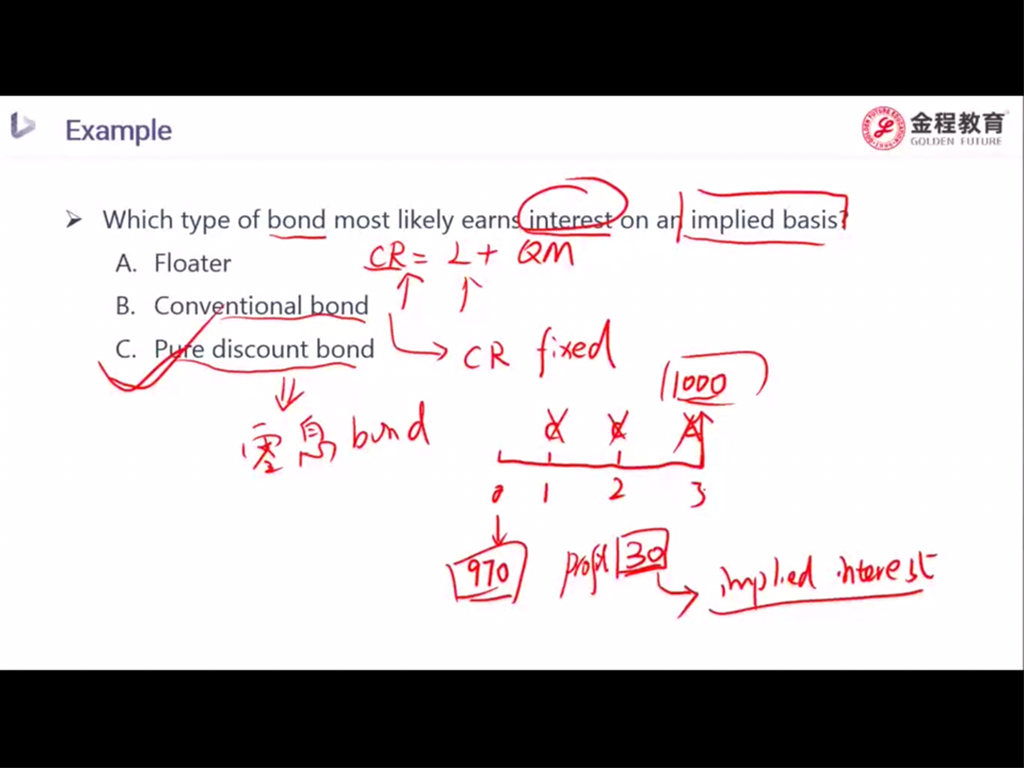 Example
金程教育
GOLDEN FUTURE
➢ Which type of bond most likely earns interest on an implied basis?
A. Floater
CR = L + QM
B. Conventional bond
C. Pure discount bond
CR fixed
1000
零息 bond
0 1 2 3
970 profit 30 implied interest